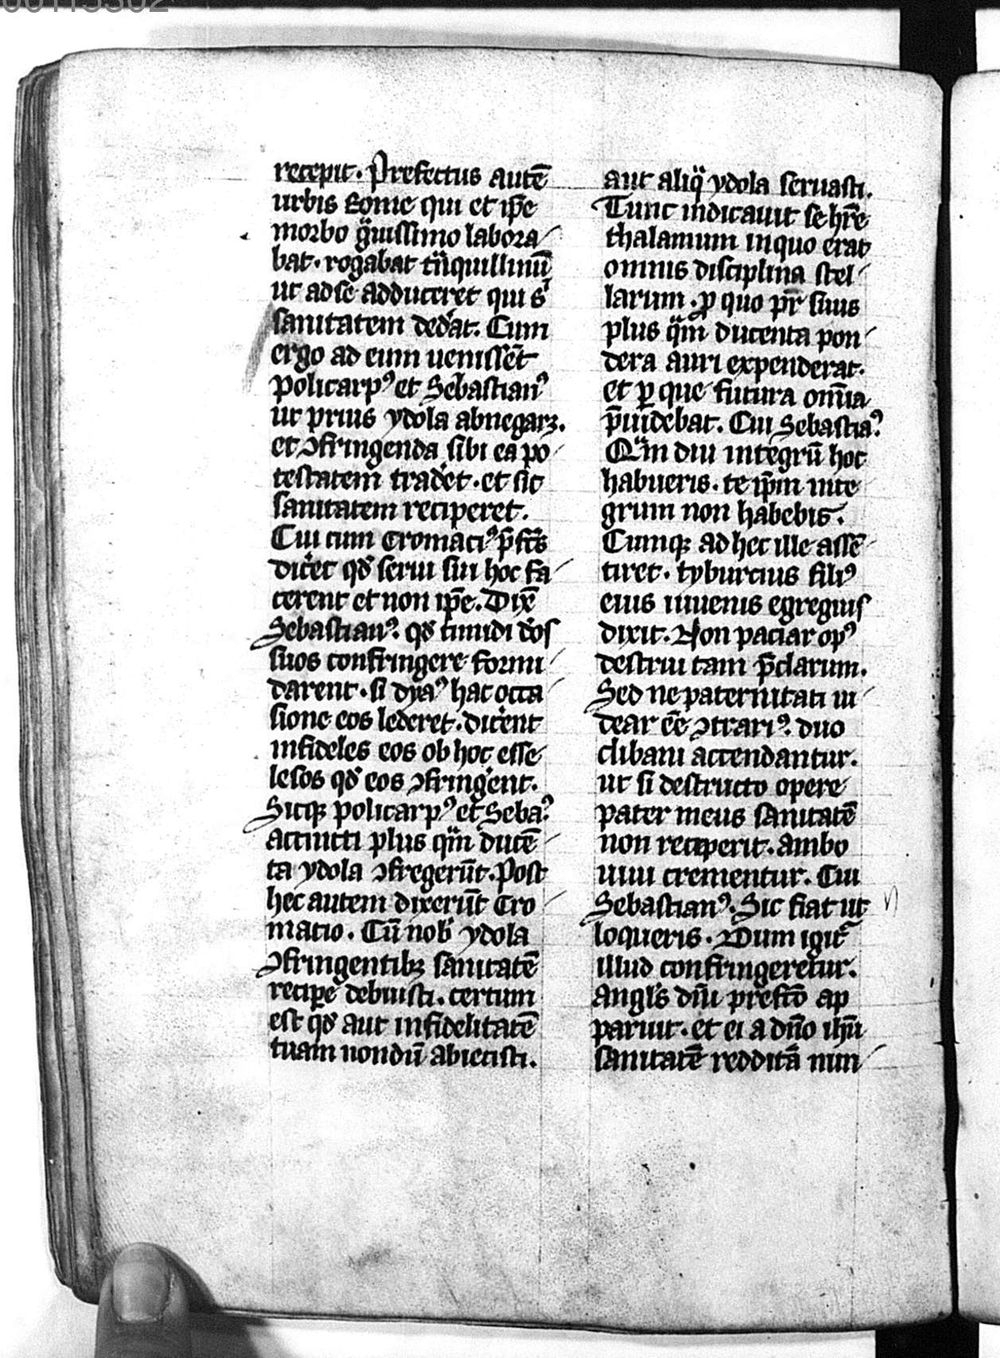 recepit. Prefectus autē
urbis Rome qui et ip̄e
morbo gͣuissimo labora
bat. rogabat tͣnquillinū
ut ad se adduceret qui sͥ
sanitatem ded̓at. Cum
ergo ad eum uenissēt
policarpꝰ et Sebastianꝰ
ut prius ydola abnegarꝫ.
et ꝯfringenda sibi ea po
testatem trad̓et. et sic
sanitatem reciperet.
Cui cum cromaciꝰ p̄fcūs
dic̓et qd̓ serui sui hoc fa
cerent et non ip̄e. Dix̄
Sebastianꝰ. qd̓ timidi d̓os
suos confringere formi
darent. si dyaꝰ hac occa
sione eos lederet. dic̓ent
infideles eos ob hoc esse
lesos qd̓ eos ꝯfring̓ent.
Sicqꝫ policarpꝰ et Sebaꝰ.
accincti plus qͣm ducē
ta ydola ꝯfregerūt. Post
hec autem dixerūt Cro
macio. Cū nob̓ ydola
ꝯfringentibꝫ sanitatē
recipe debuisti. certum
est qd̓ aut infidelitatē
tuam nondū abiecisti.
aut aliqͣ ydola seruasti.
Tunc indicauit se hr̄e
thalamum in quo erat
omnis disciplina stel
larum. ꝓ quo pr̄ suus
plus qͣm ducenta pon
dera auri expenderat.
et ꝑ que futura om̄ia
p̄uidebat. Cui Sebastiaꝰ.
Qͣm diu integrū hoc
habueris. te ip̄m inte
grum non habebis.
Cumqꝫ ad hec ille assē
tiret. tyburcius filiꝰ
eius iuuenis egregius
dixit. Non paciar opꝰ
destrui tam p̄clarum.
Sed ne paternitati ui
dear ēe ꝯtrariꝰ. duo
clibani accendantur.
ut si destructo opere
pater meus sanitatē
non receperit. ambo
uiui crementur. Cui
Sebastianꝰ. Sic fiat ut
loqueris. Dum igit̄
illud confringeretur.
angl̓s dn̄i prefcō ap
paruit. et ei a dn̄o ihū
sanitatē redditā nun